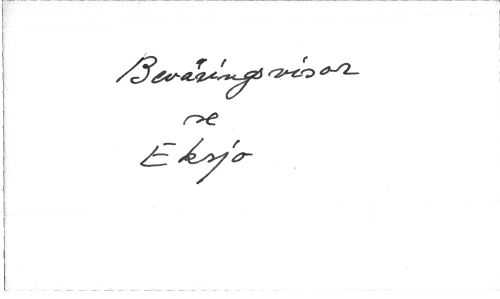 Beväringsvisor
se
Eksjo